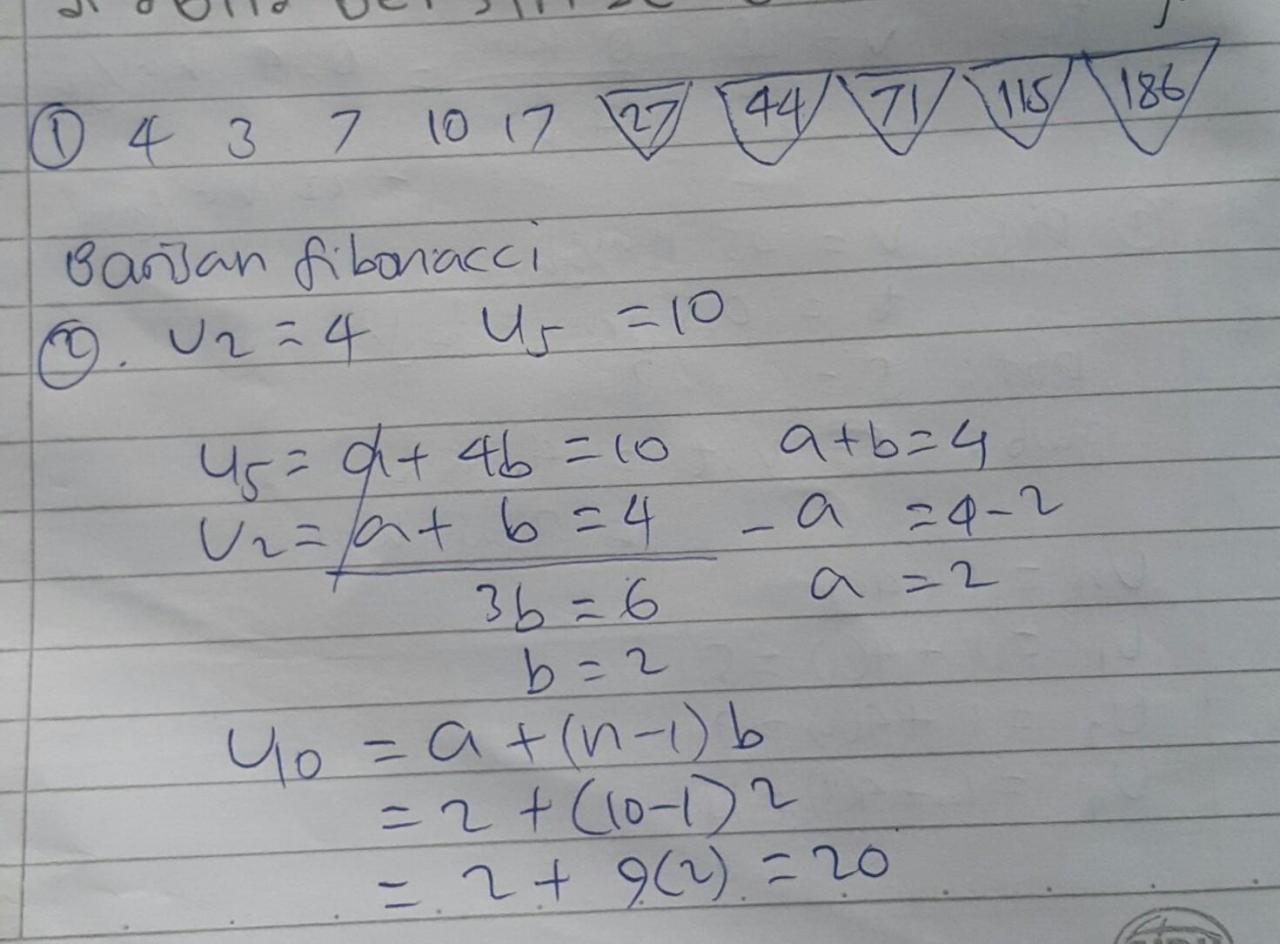 ① 4 3 7 10 17 27 44 71 115 186
Barisan fibonacci
②. U2 = 4 U5 = 10
U5 = a + 4b = 10 a + b = 4
U2 = a + b = 4 - a = 4 - 2
3b = 6 a = 2
b = 2
U10 = a + (n-1) b
= 2 + (10-1) 2
= 2 + 9(2) = 20